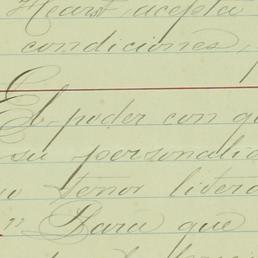 Hearst acepta
condiciones,
El poder con qu
su personalid
u tenor litera
"Para que